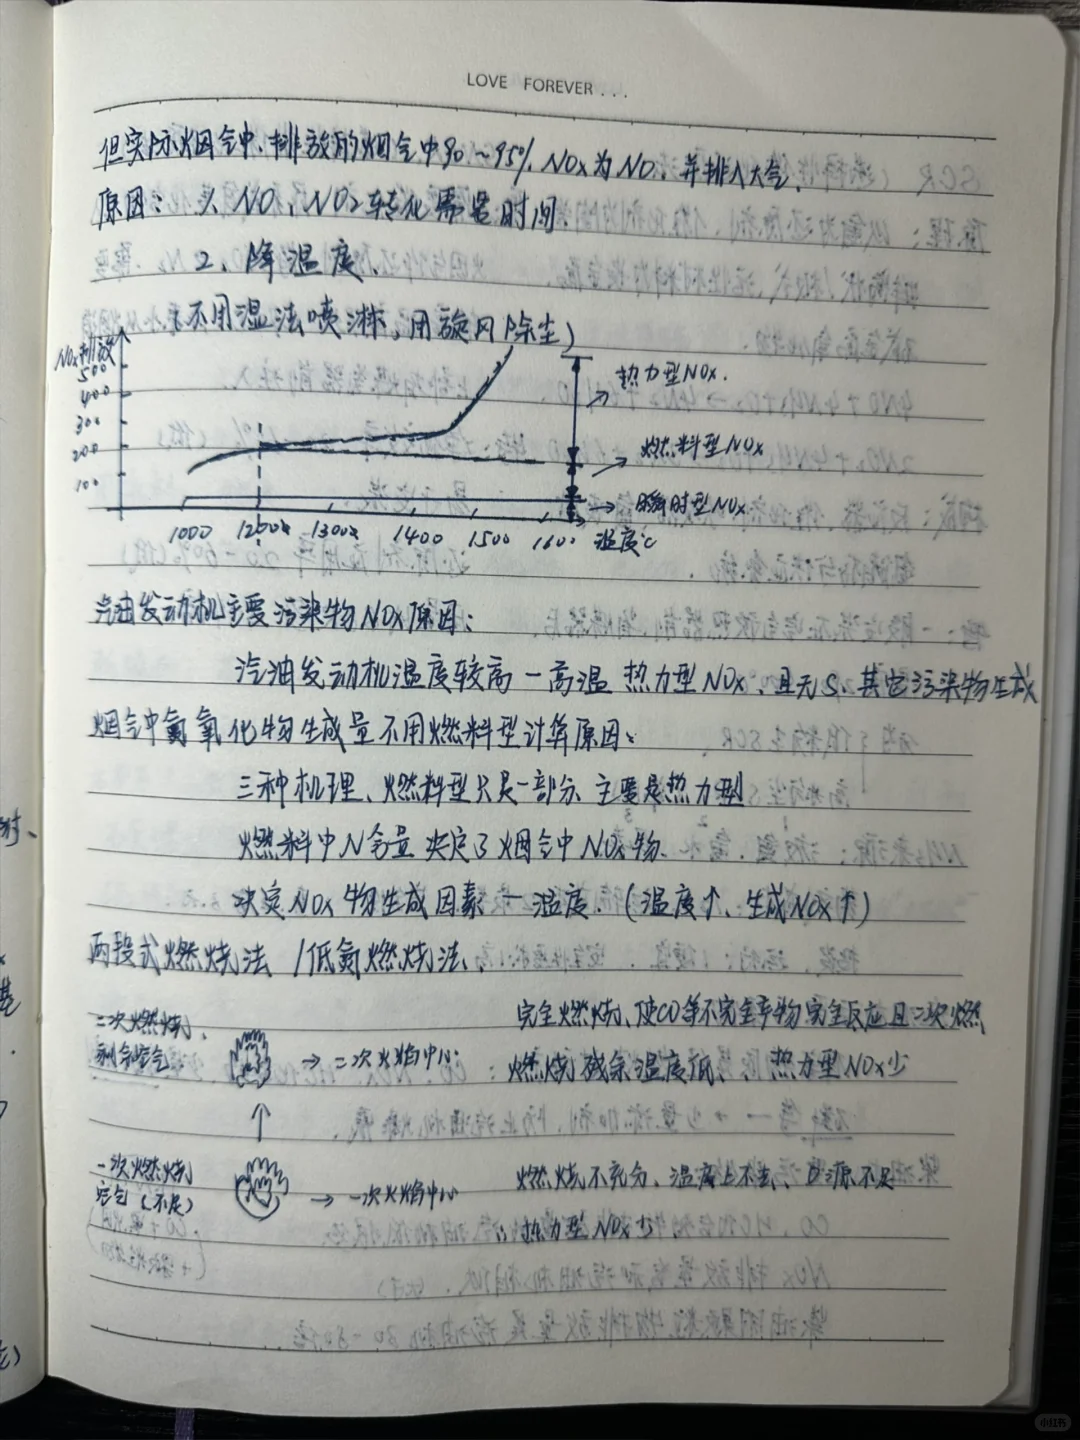 LOVE FOREVER . . .
但实际烟气中，排放的烟气中90～95% NOx为NO，并排入大气，
原因：1、NO、NO2转化需是时间．
2、降温度、
不用湿法喷淋，用旋风除尘）
NOx排放
500
400
300
200
100
热力型NOx.
燃料型NOx
瞬时型NOx
1000 1200 1300 1400 1500 1600 温度℃
汽油发动机主要污染物NOx原因：
汽油发动机温度较高－高温 热力型NOx、且无S、其它污染物生成
烟气中氮氧化物生成量不用燃料型计算原因、
三种机理、燃料型只是一部分 主要是热力型
燃料中N含量 决定了烟气中NOx物、
决定NOx物生成因素－温度．（温度↑、生成NOx↑）
两段式燃烧法 /低氮燃烧法、
二次燃烧，
剩余空气
→二次火焰中心：
完全燃烧、使CO等不完全产物完全反应且二次燃
燃烧 残余温度低、热力型NOx少
↑
一次燃烧
空气（不足）
→一次火焰中心
燃烧不充分、温度上不去、O源不足
热力型NOx少
小红书